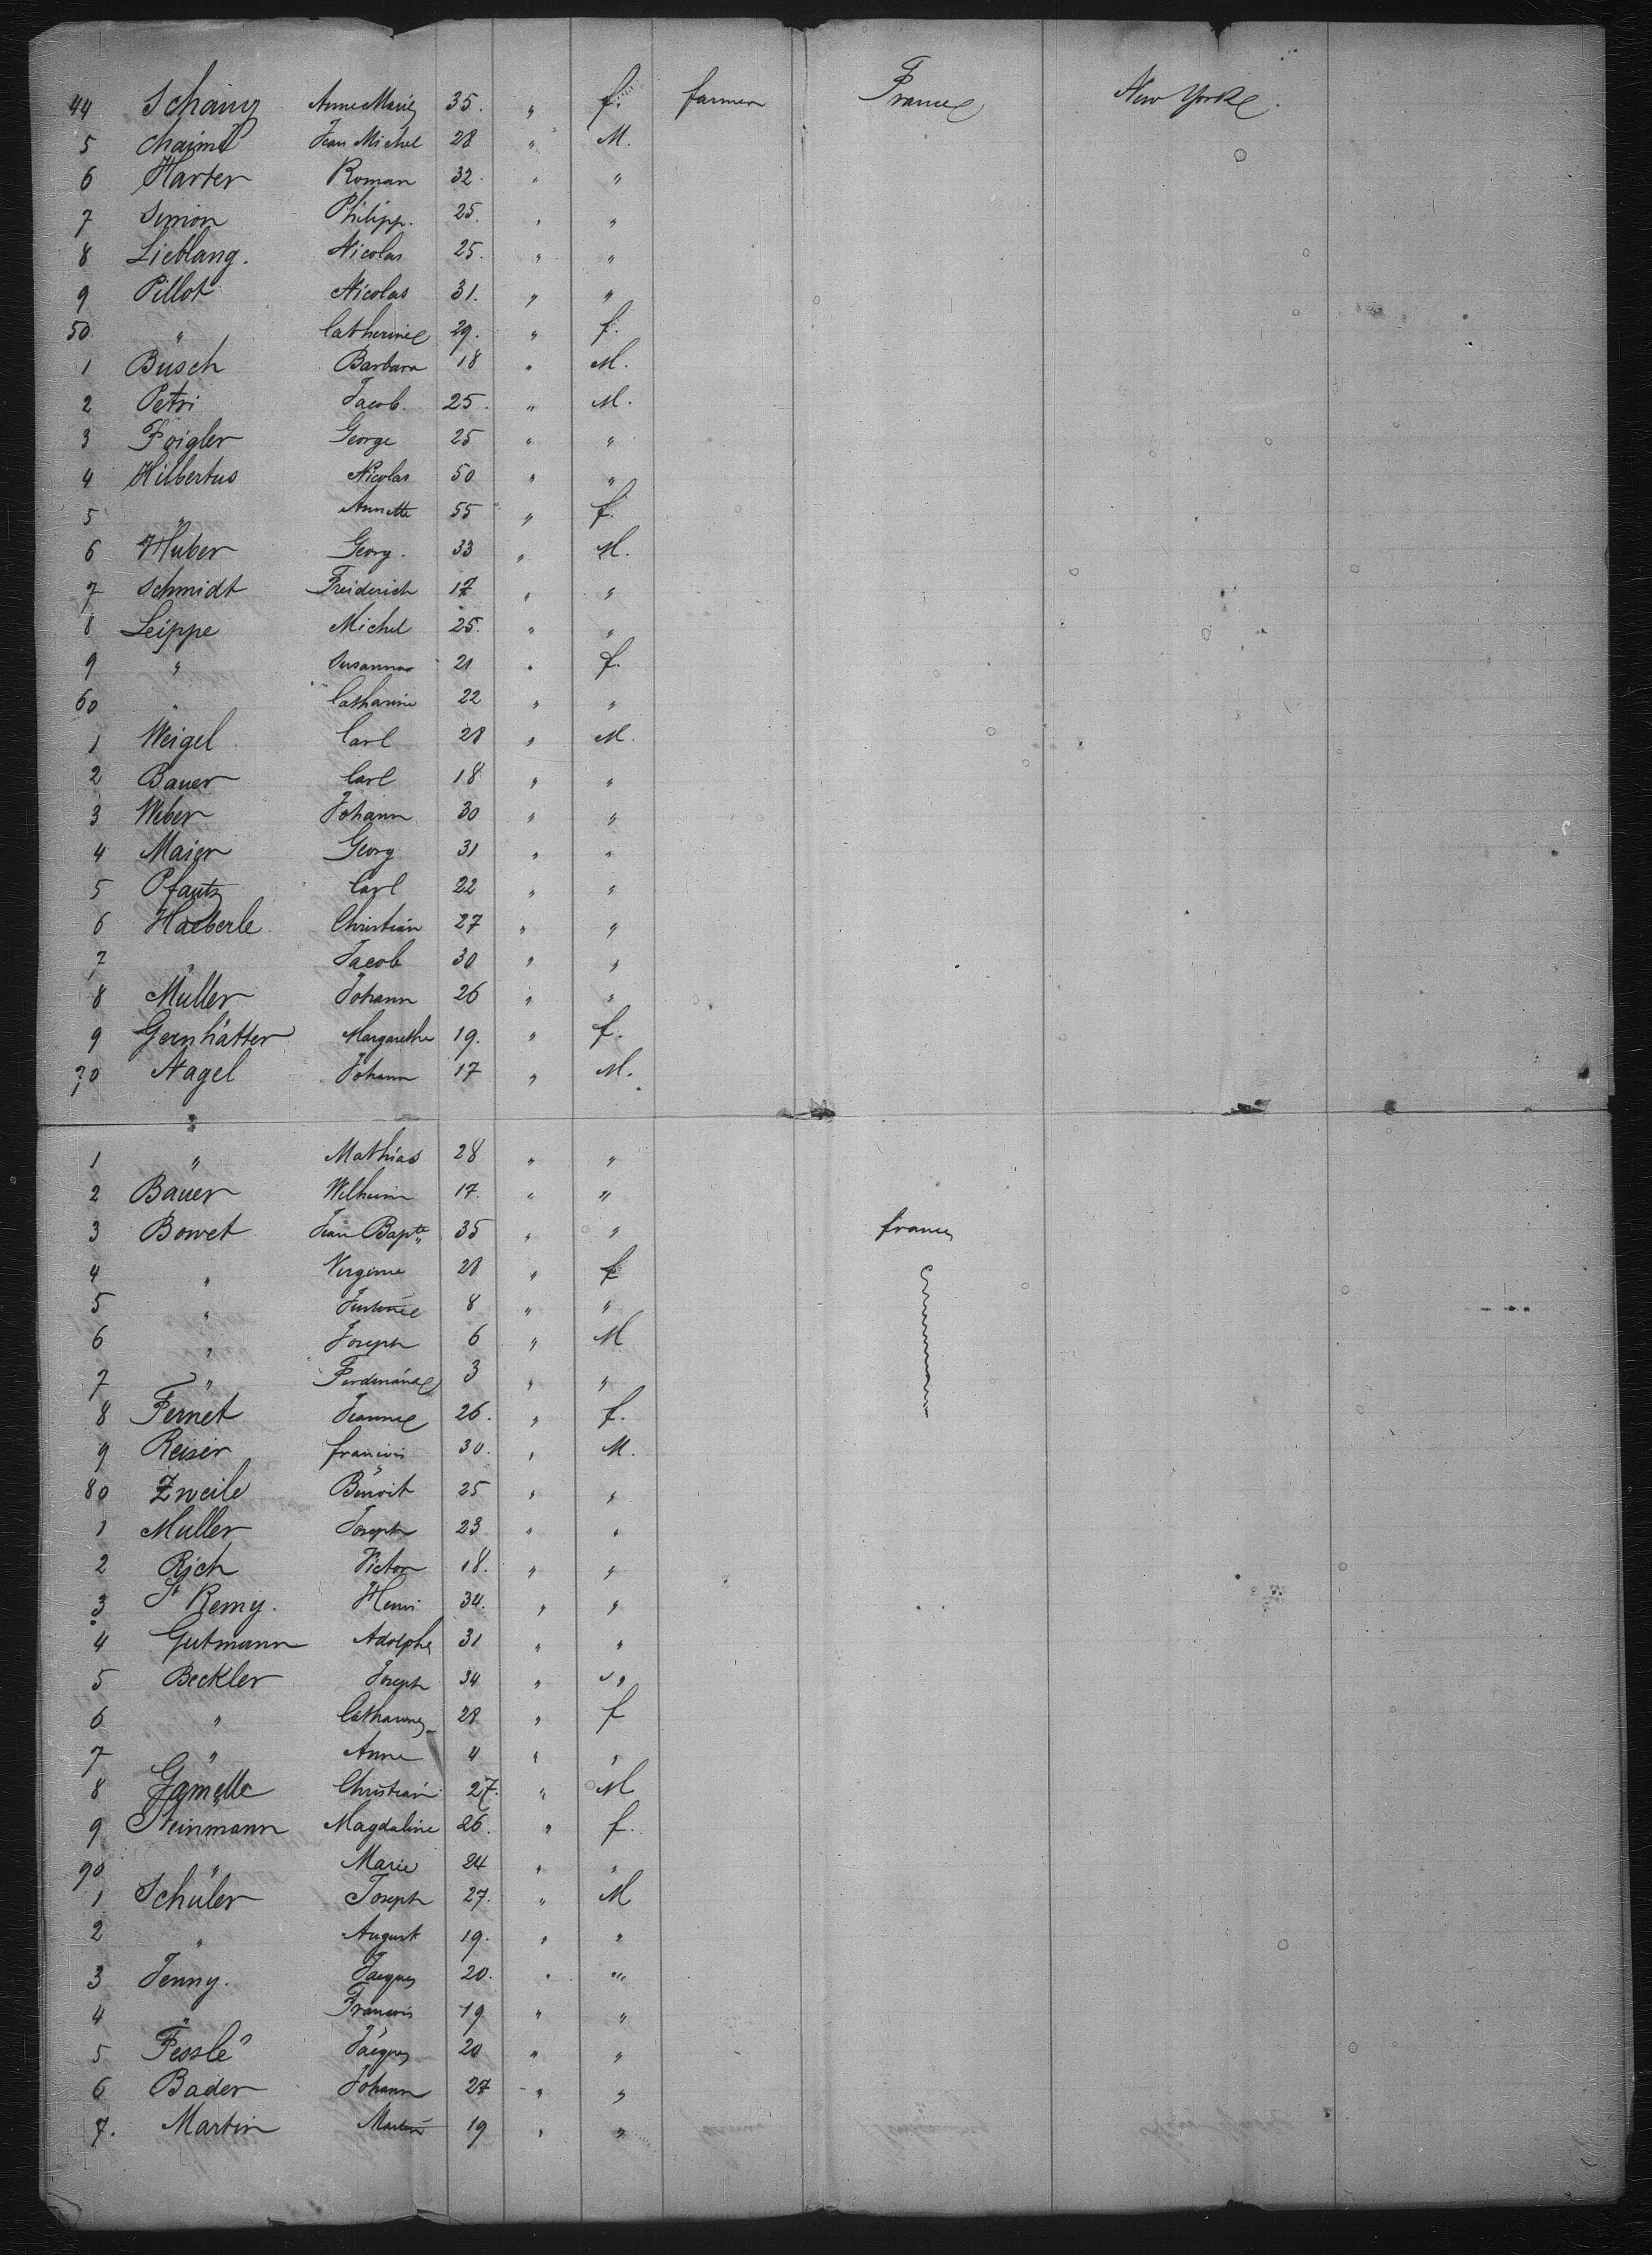 44 Schang Anne Marie 35. " f. farmer France New York.
5 Jean Michel 28 " M.
6 Harter Roman 32. " "
7 Simon Philipp. 25. " "
8 Lieblang. Nicolas 25. " "
9 Pillot Nicolas 31. " "
50. " Catherine 29. " f.
1 Busch Barbara 18 " M.
2 Petri Jacob. 25. " M.
3 Foigler George 25 " "
4 Hilbertus Nicolas 50 " "
5 " Annette 55 " f.
6 Huber Georg. 33 " M.
7 Schmidt Freiderich 17 " "
8 Leippe Michel 25. " "
9 " Susanna 21 " f.
60 " Catharine 22 " "
1 Weigel Carl 28 " M.
2 Bauer Carl 18 " "
3 Weber Johann 30 " "
4 Maier Georg 31 " "
5 Pfautz Carl 22 " "
6 Haeberle Christian 27 " "
7 " Jacob 30 " "
8 Muller Johann 26 " "
9 Gernhätter Margaretha 19. " f.
70 Nagel Johann 17 " M.
1 " Mathias 28 " "
2 Bauer Wilheim 17. " "
3 Bowet Jean Bapte 35 " " france
4 " Virginie 28 " f
5 " Justinée 8 " "
6 " Joseph 6 " M
7 " Ferdinand 3 " "
8 Fernet Jeanne 26. " f.
9 Reiser francois 30. " M.
80 Zweile Benoit 25 " "
1 Muller Joseph 23 " "
2 Rich Victor 18. " "
3 St Remy. Henri 34. " "
4 Gutmann Adolphe 31 " "
5 Beckler Joseph 34 " "
6 " Catharine 28 " f
7 " Anne 4 " "
8 Gamelle Christian 27. " M
9 Steinmann Magdaline 26. " f.
90 " Marie 24 " "
1 Schuler Joseph 27. " M
2 " August 19. " "
3 Jenny. Jacques 20. " "
4 " Francois 19 " "
5 Fesslé Jacques 20 " "
6 Bader Johann 27 " "
7. Martin Martin 19 " "